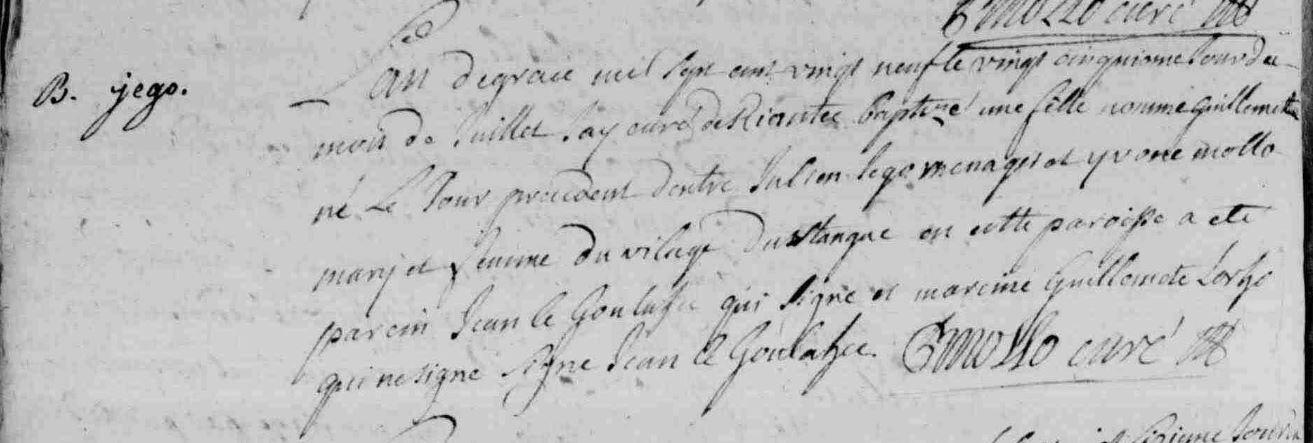 mollo curé
B. jego.
Lan de grace mil sept cent vingt neuf le vingt cinquieme Jour du
mois de Juillet Jay curé de Riantec baptizé une fille nommé guillemette
né Le Jour precedent dentre Julien Jego menager et yvone mollo
marij et femme du vilage du stanque en cette paroisse a eté
parein Jean le Goulahec qui signe et mareine Guillemete
qui ne signe signe Jean le Goulahec. mollo curé